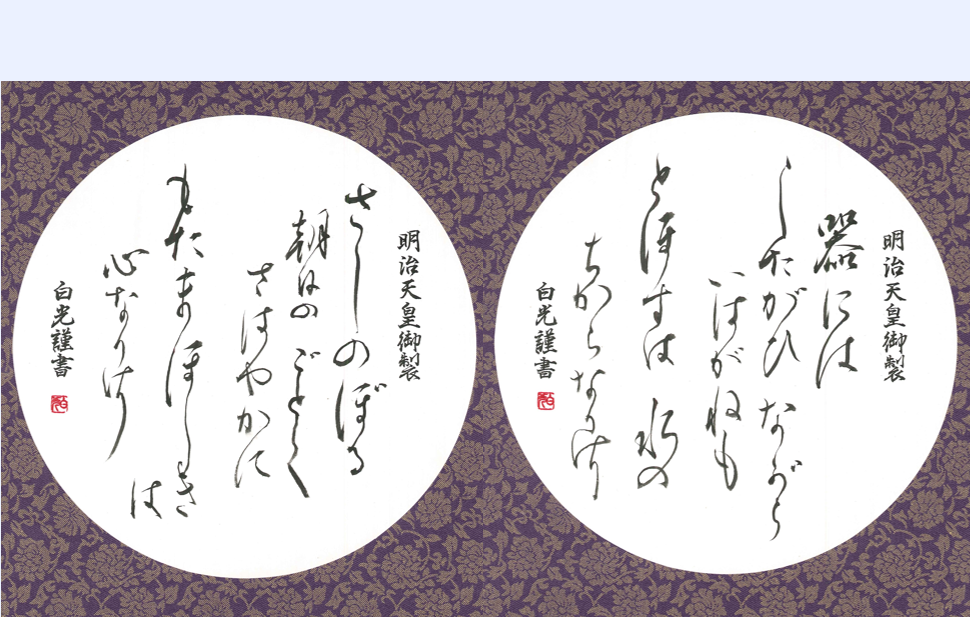 明治天皇御製
器には
したがひながら
いはがねも
とほすは水の
ちからなりけり
白光謹書
明治天皇御製
さしのぼる
朝日のごとく
さはやかに
もたまほしき
は
心なりけり
白光謹書